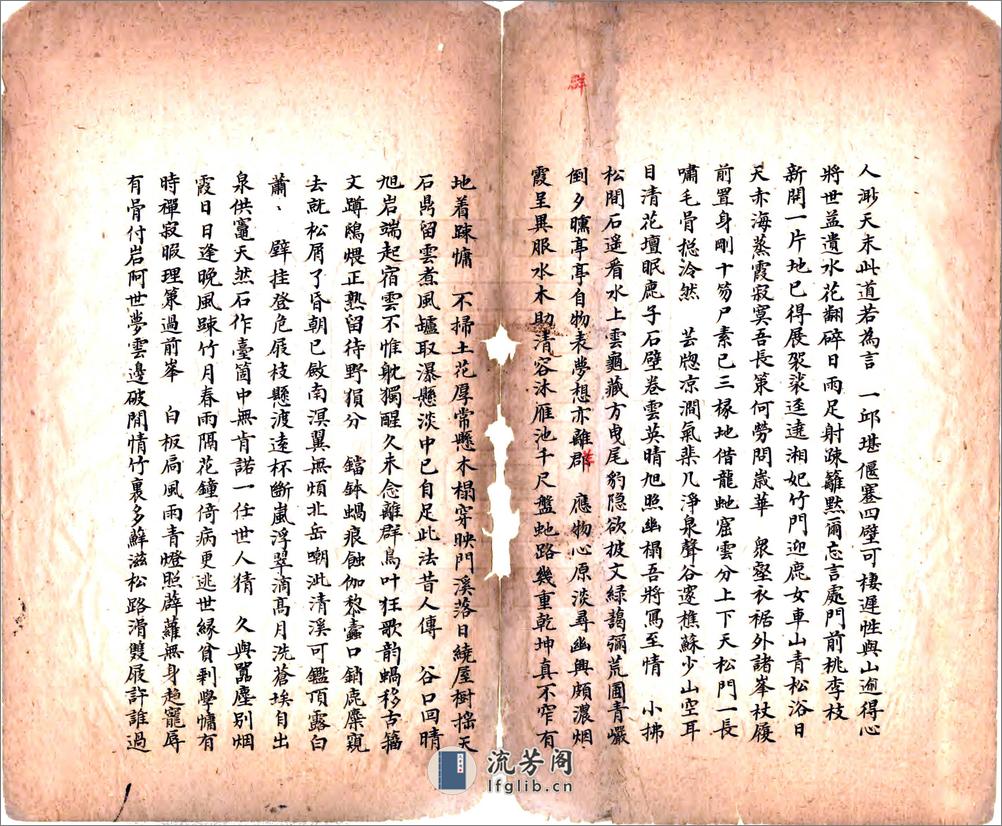 群
人渺天末此道若為言　一邱堪偃蹇四壁可棲遲性與山逾得心
將世益遺水花翻碎日雨足射疎籬黙爾忘言處門前桃李枝
新開一片地已得展袈裟逕遶湘妃竹門迎鹿女車山青松浴日
天赤海蒸霞寂寞吾長策何勞問歲華　眾壑衣裾外諸峯杖履
前置身剛十笏尸素已三椽地偕龍虵窟雲分上下天松門一長
嘯毛骨捴泠然　芸牎凉潤氣棐几淨泉聲谷邃樵蘇少山空耳
目清花壇眠鹿子石壁卷雲英晴旭照幽榻吾將寫至情　小拂
松間石遥看水上雲龜藏方曳尾豹隐欲披文緑藹彌荒圃青巘
倒夕曛亭亭自物表夢想亦離群　應物心原淡尋幽興頗濃烟
霞呈異服水木助清容沐雁池千尺盤虵路幾重乾坤真不窄有
地着疎慵　不掃土花厚常懸木榻穿映門溪落日繞屋樹摇天
石鼎留雲煮風罏取瀑懸淡中已自足此法昔人傳　谷口回晴
旭岩端起宿雲不惟躭獨醒久未念離群鳥叶狂歌韵蝸移古籀
文蹲鴟煨正熟留待野猿分　鐺鉢蝸痕蝕伽黎蠹口銷鹿麋窺
去就松屑了昏朝已斂南溟翼無煩北岳嘲沘清溪可鑑頂露白
蕭、　壁挂登危屐枝懸渡逺杯斷嵐浮翠滴髙月洗蒼埃自出
泉供竈天然石作臺箇中無肯諾一任世人猜　久與嚣塵别烟
霞日日逢晚風疎竹月春雨隔花鐘倚病更逃世縁貧剩學慵有
時禪寂暇理策過前峯　白板扄風雨青燈照薜蘿無身趂寵辱
有骨付岩阿世夢雲邊破閒情竹裏多蘚滋松路滑雙屐許誰過
流芳阁
lfglib.cn